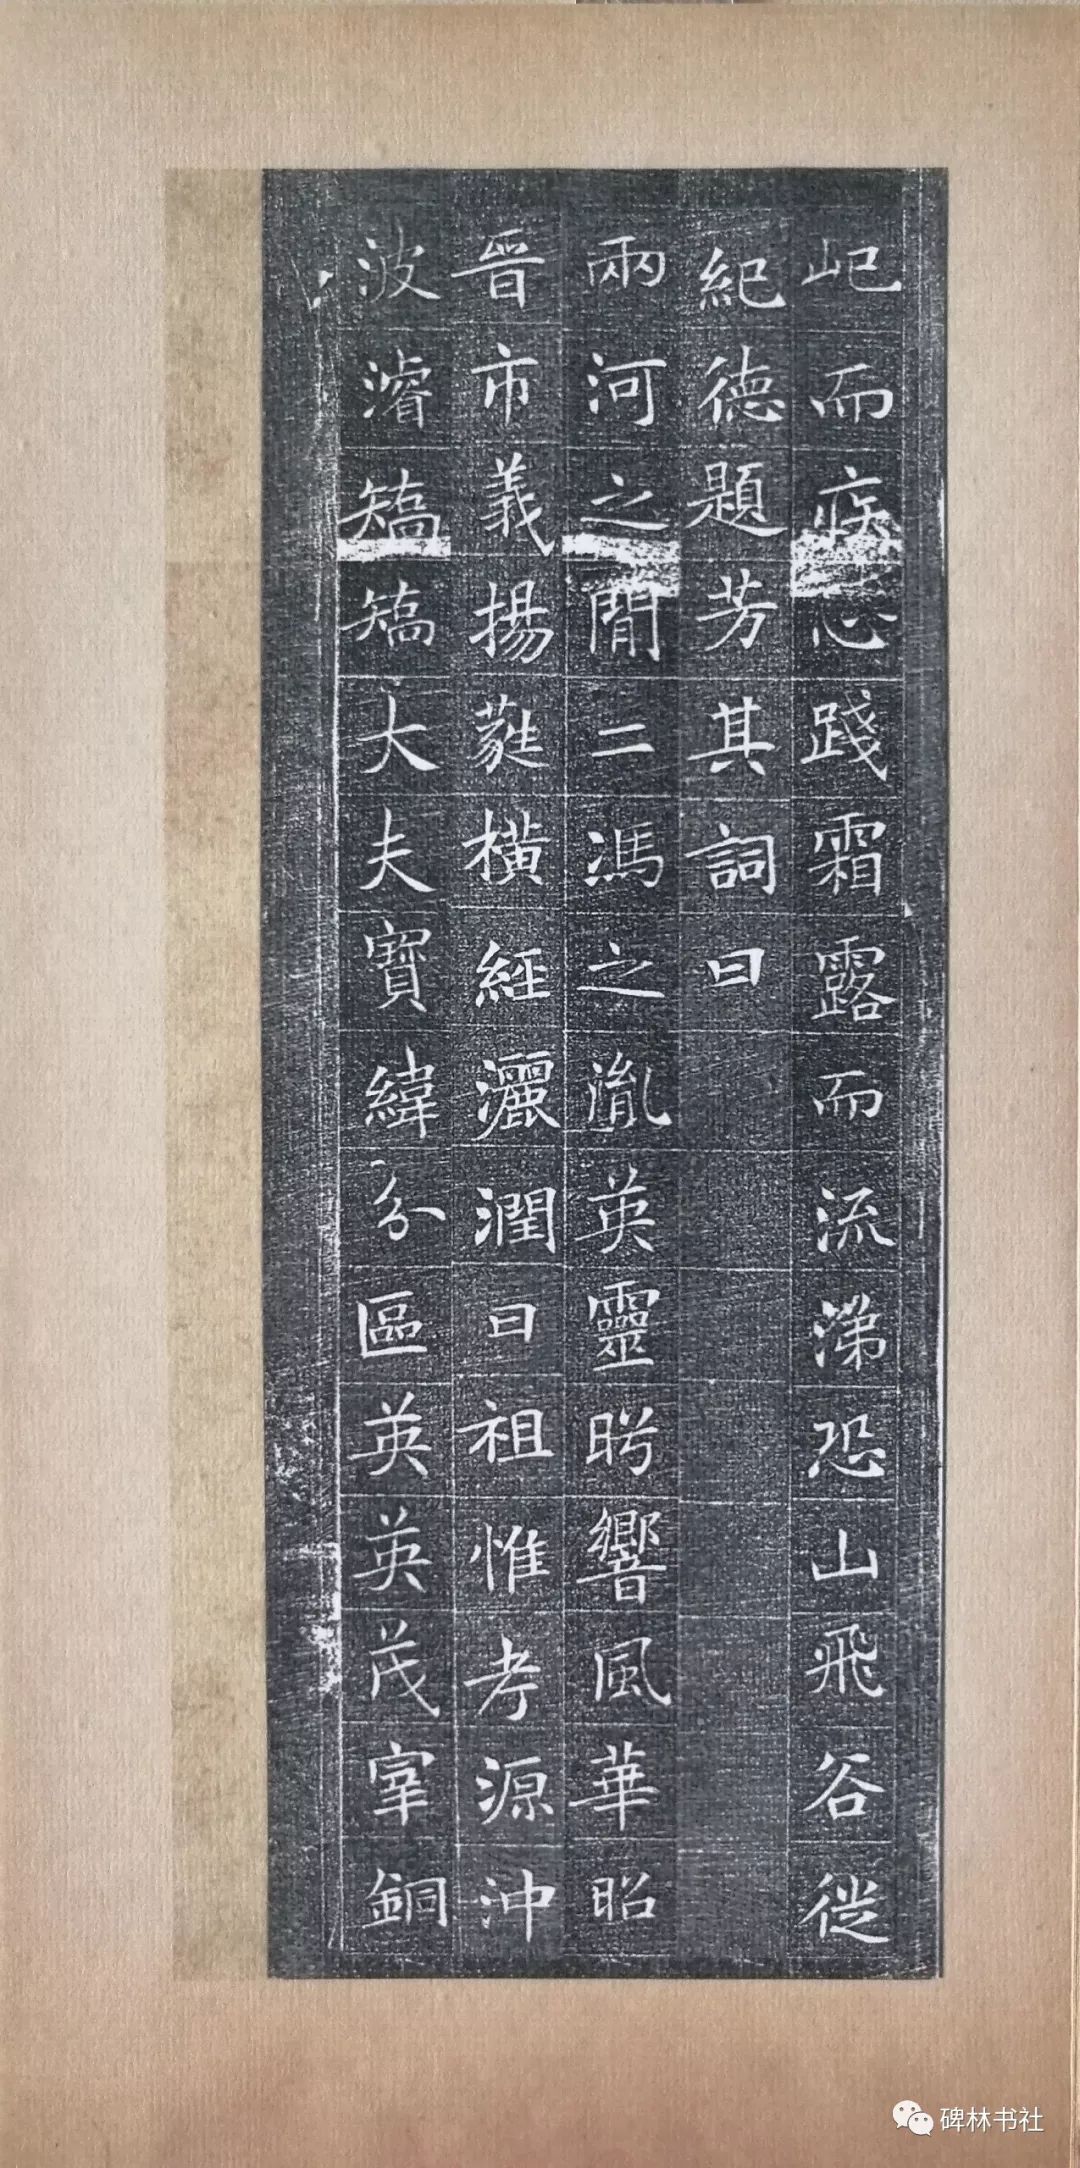 屺而疚心踐霜露而流涕恐山飛谷從
紀德題芳其詞曰
兩河之間二馮之胤英靈眄響風華昭
晉市義揚蕤橫經灑潤曰祖惟孝源沖
波濬矯矯大夫寶緯分區英英茂宰銅
碑林书社